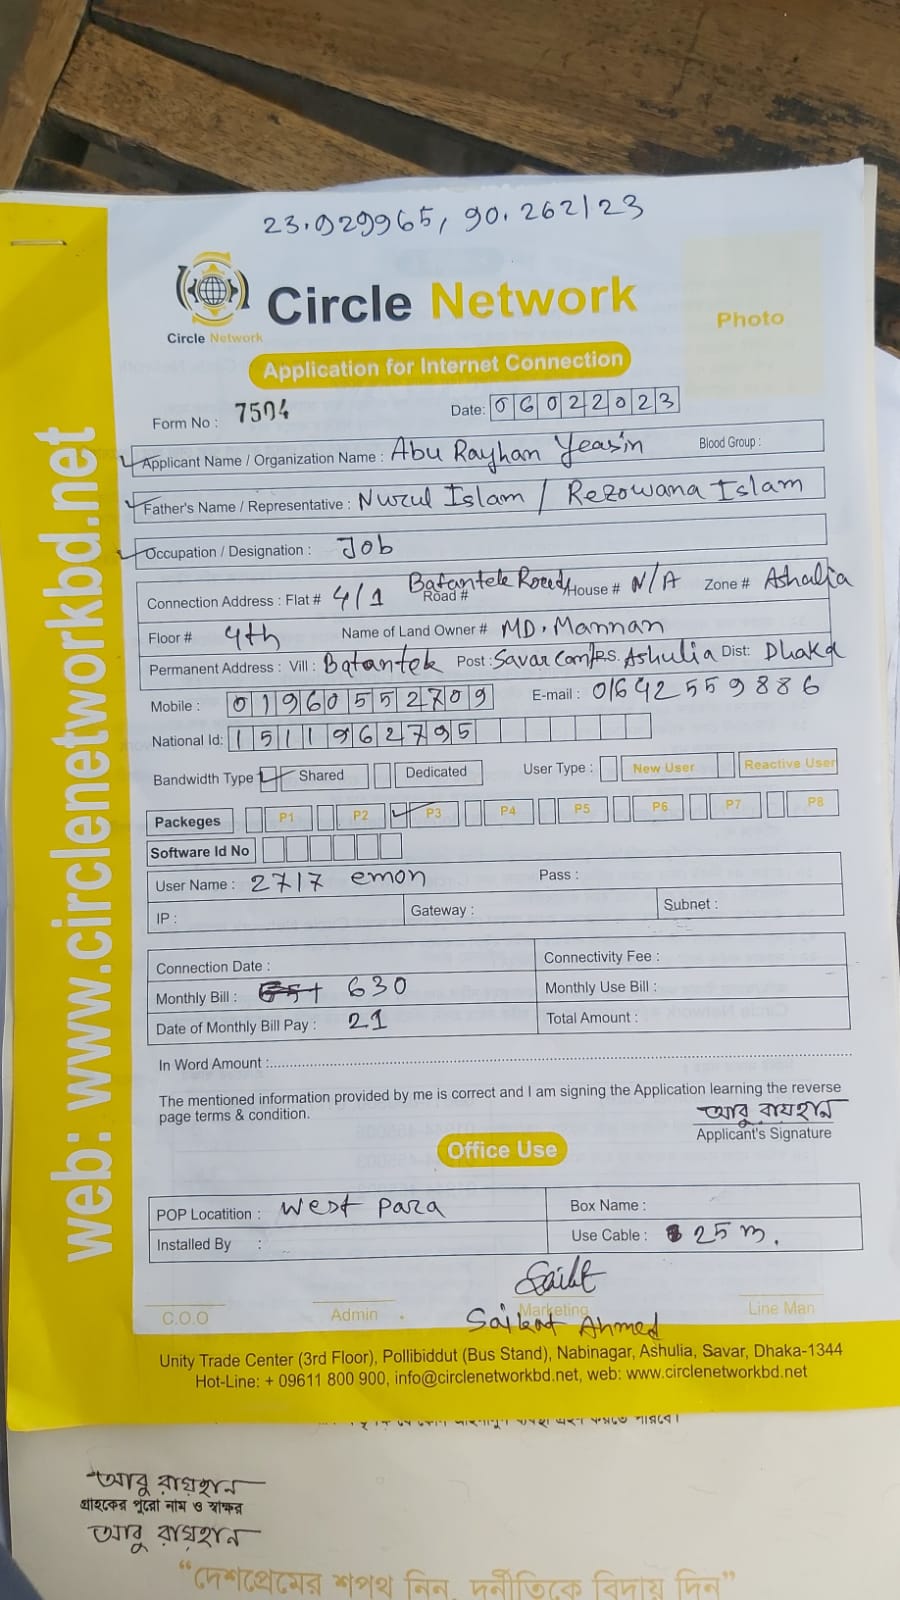 23.929965, 90.262123
Circle Network
Circle Network
Photo
Application for Internet Connection
Form No : 7504
Date: 06022023
Applicant Name / Organization Name : Abu Rayhan Yeasin Blood Group :
Father's Name / Representative : Nurul Islam / Rezowana Islam
Occupation / Designation : Job
Connection Address : Flat # 4/1 Road # Batantek Road, House # N/A Zone # Ashulia
Floor # 4th Name of Land Owner # MD. Mannan
Permanent Address : Vill : Batantek Post : Savar Cant P.S. Ashulia Dist: Dhaka
Mobile : 01960552709 E-mail : 01642559886
National Id: 1511962795
Bandwidth Type Shared Dedicated User Type : New User Reactive User
Packeges P1 P2 P3 P4 P5 P6 P7 P8
Software Id No
User Name : 2717 emon Pass :
IP : Gateway : Subnet :
Connection Date : Connectivity Fee :
Monthly Bill : 630 Monthly Use Bill :
Date of Monthly Bill Pay : 21 Total Amount :
In Word Amount :
The mentioned information provided by me is correct and I am signing the Application learning the reverse
page terms & condition.
আবু রায়হান
Applicant's Signature
Office Use
POP Locatition : West Para Box Name :
Installed By : Use Cable : 25 m.
C.O.O Admin Marketing Line Man
Saikat Ahmed
Unity Trade Center (3rd Floor), Pollibiddut (Bus Stand), Nabinagar, Ashulia, Savar, Dhaka-1344
Hot-Line: + 09611 800 900, info@circlenetworkbd.net, web: www.circlenetworkbd.net
web: www.circlenetworkbd.net
আবু রায়হান
গ্রাহকের পুরো নাম ও স্বাক্ষর
আবু রায়হান
“দেশপ্রেমের শপথ নিন, দুর্নীতিকে বিদায় দিন”